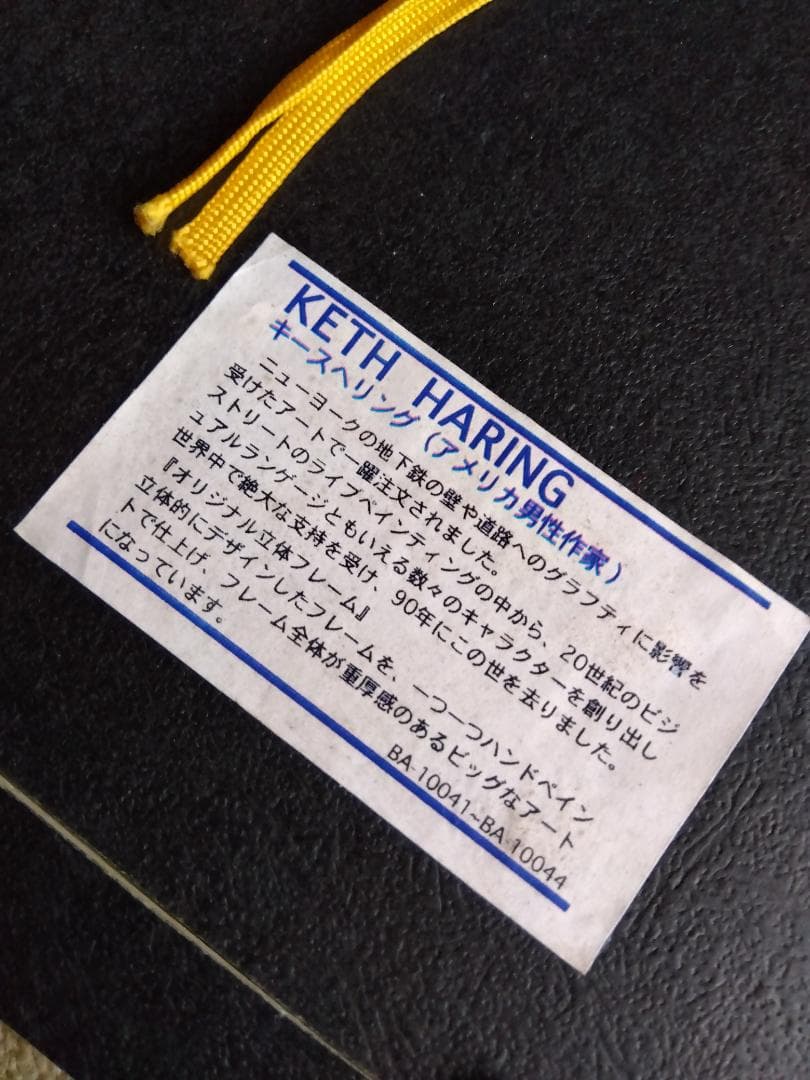 KETH HARING
キースヘリング（アメリカ男性作家）
ニューヨークの地下鉄の壁や道路へのグラフティに影響を
受けたアートで一躍注文されました。
ストリートのライブペインティングの中から、20世紀のビジ
ュアルランゲージともいえる数々のキャラクターを創り出し
世界中で絶大な支持を受け、90年にこの世を去りました。
『オリジナル立体フレーム』
立体的にデザインしたフレームを、一つ一つハンドペイン
トで仕上げ、フレーム全体が重厚感のあるビッグなアート
になっています。
BA-10041~BA-10044